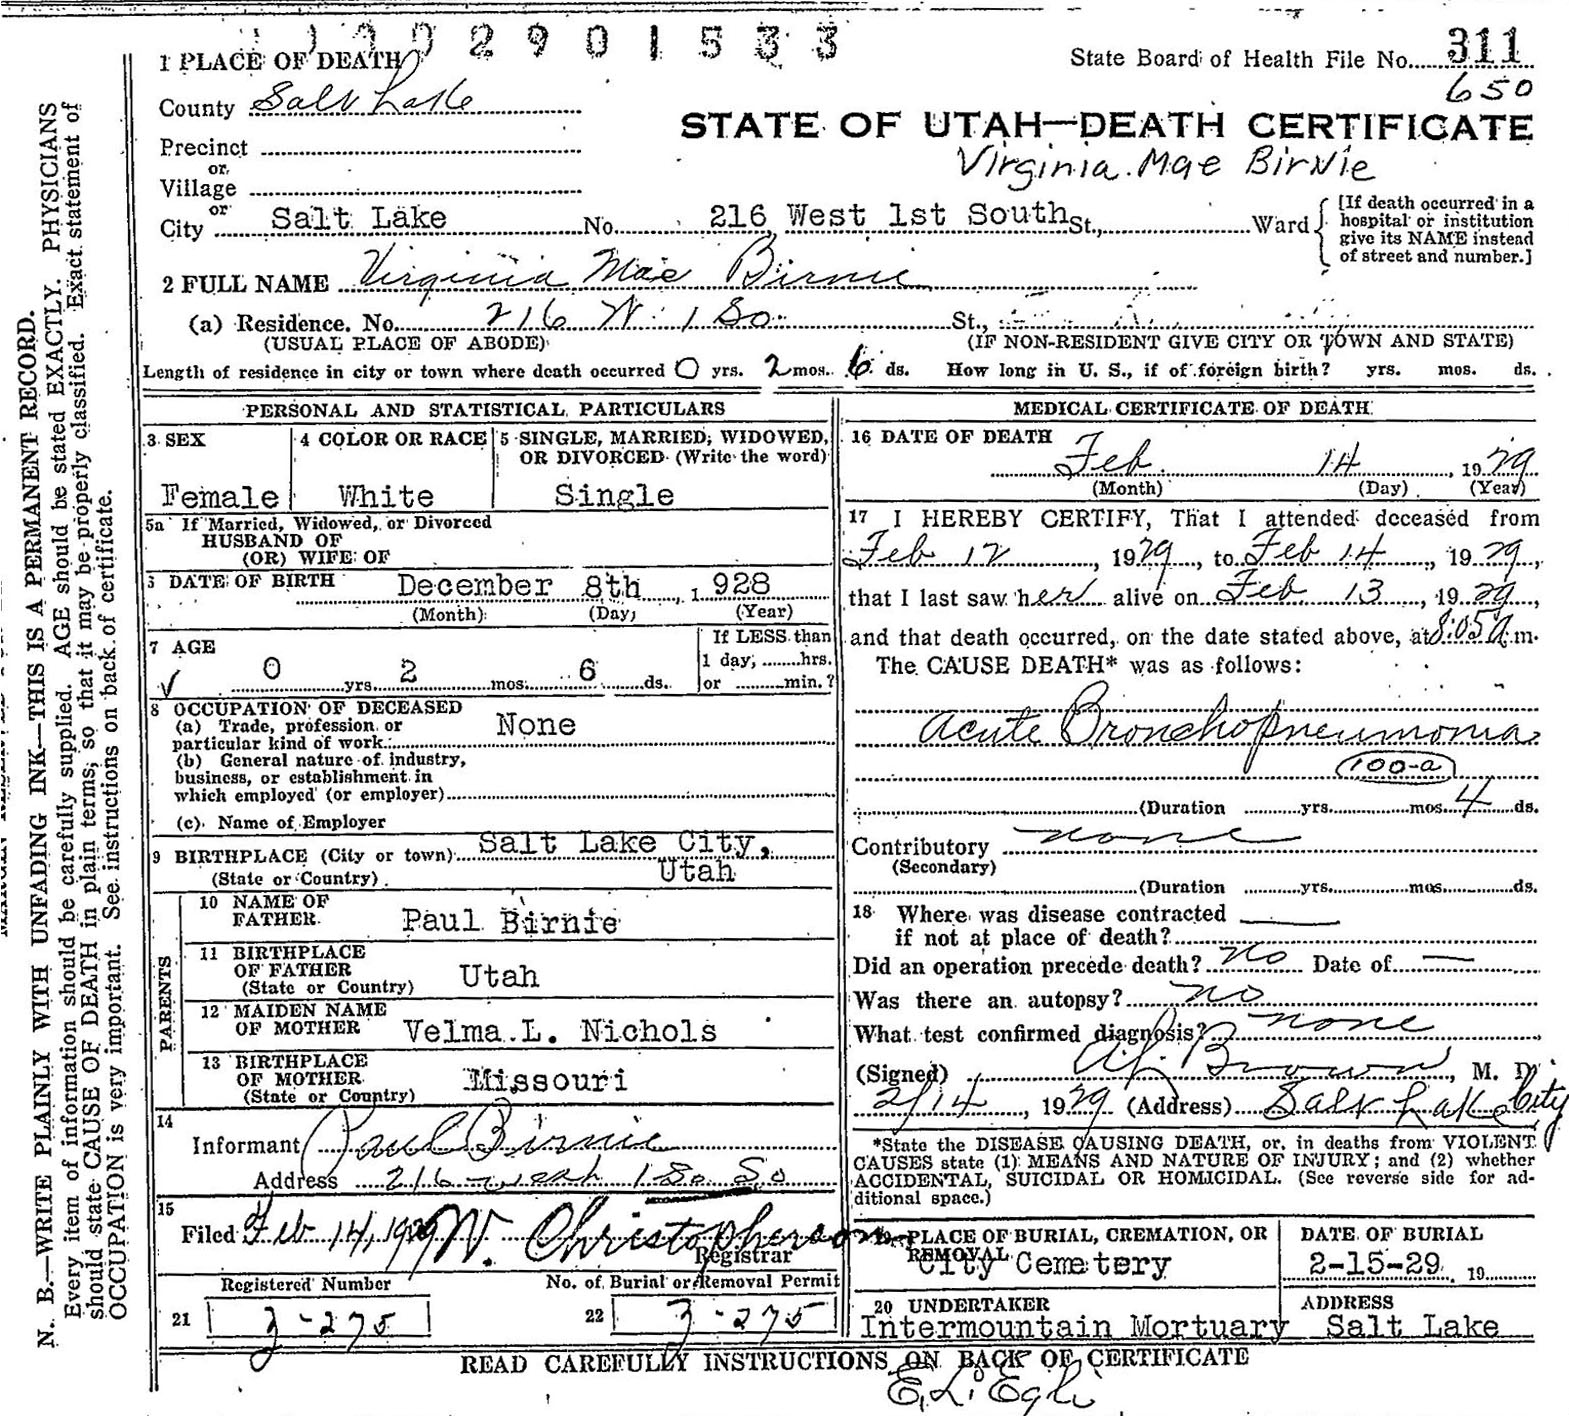 1 PLACE OF DEATH
2901533
State Board of Health File No. 311
650
County Salt Lake
STATE OF UTAH—DEATH CERTIFICATE
Precinct
or
Virginia Mae Birnie
Village
or
City Salt Lake No. 216 West 1st South St., Ward
[If death occurred in a
hospital or institution
give its NAME instead
of street and number.]
2 FULL NAME Virginia Mae Birnie
(a) Residence. No. 216 W. 1 So. St.,
(USUAL PLACE OF ABODE) (IF NON-RESIDENT GIVE CITY OR TOWN AND STATE)
Length of residence in city or town where death occurred 0 yrs. 2 mos. 6 ds. How long in U. S., if of foreign birth? yrs. mos. ds.
PERSONAL AND STATISTICAL PARTICULARS
3 SEX
Female
4 COLOR OR RACE
White
5 SINGLE, MARRIED, WIDOWED,
OR DIVORCED (Write the word)
Single
5a If Married, Widowed, or Divorced
HUSBAND OF
(OR) WIFE OF
DATE OF BIRTH December 8th, 1928
(Month) (Day) (Year)
7 AGE
0 yrs. 2 mos. 6 ds.
If LESS than
1 day, hrs.
or min.?
8 OCCUPATION OF DECEASED
(a) Trade, profession or
particular kind of work None
(b) General nature of industry,
business, or establishment in
which employed (or employer)
(c) Name of Employer
9 BIRTHPLACE (City or town) Salt Lake City,
(State or Country) Utah
PARENTS
10 NAME OF
FATHER Paul Birnie
11 BIRTHPLACE
OF FATHER
(State or Country) Utah
12 MAIDEN NAME
OF MOTHER Velma L. Nichols
13 BIRTHPLACE
OF MOTHER
(State or Country) Missouri
14
Informant Paul Birnie
Address 216 West 1 So
15
Filed Feb 14, 1929 W. Christopherson
Registrar
Registered Number
21 3-275
No. of Burial or Removal Permit
22 3-275
MEDICAL CERTIFICATE OF DEATH
16 DATE OF DEATH
Feb 14, 1929
(Month) (Day) (Year)
17 I HEREBY CERTIFY, That I attended deceased from
Feb 12, 1929, to Feb 14, 1929,
that I last saw her alive on Feb 13, 1929,
and that death occurred, on the date stated above, at 8:05 a.m.
The CAUSE DEATH* was as follows:
Acute Bronchopneumonia
100-a
(Duration yrs. mos. 4 ds.
Contributory none
(Secondary)
(Duration yrs. mos. ds.
18 Where was disease contracted
if not at place of death?
Did an operation precede death? no Date of —
Was there an autopsy? no
What test confirmed diagnosis? none
(Signed) Brown, M. D.
2/14, 1929 (Address) Salt Lake City
*State the DISEASE CAUSING DEATH, or, in deaths from VIOLENT
CAUSES state (1) MEANS AND NATURE OF INJURY; and (2) whether
ACCIDENTAL, SUICIDAL OR HOMICIDAL. (See reverse side for ad-
ditional space.)
19 PLACE OF BURIAL, CREMATION, OR
REMOVAL
City Cemetery
DATE OF BURIAL
2-15-29 19
20 UNDERTAKER
Intermountain Mortuary
ADDRESS
Salt Lake
READ CAREFULLY INSTRUCTIONS ON BACK OF CERTIFICATE
E. L. Egli
N. B.—WRITE PLAINLY WITH UNFADING INK—THIS IS A PERMANENT RECORD.
Every item of information should be carefully supplied. AGE should be stated EXACTLY. PHYSICIANS
should state CAUSE OF DEATH in plain terms, so that it may be properly classified. Exact statement of
OCCUPATION is very important. See instructions on back of certificate.